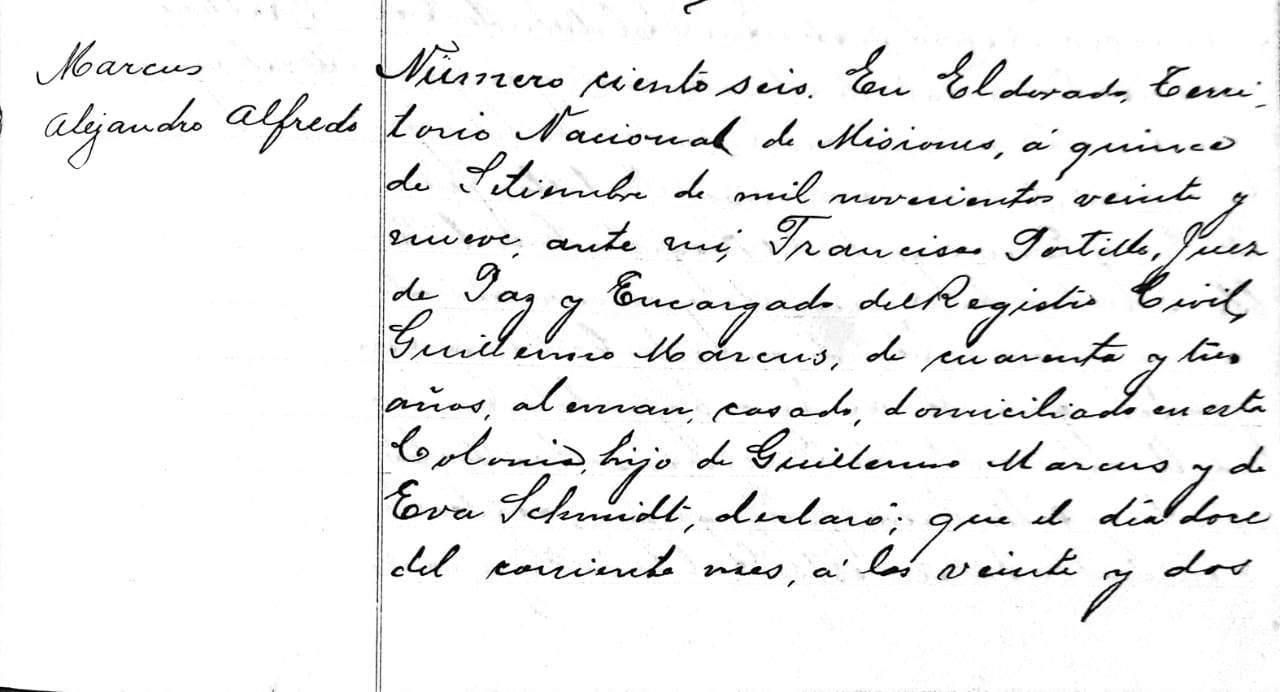 Marcus
Alejandro Alfredo
Número ciento seis. En Eldorado, Terri-
torio Nacional de Misiones, á quince
de Setiembre de mil novecientos veinte y
nueve, ante mi, Francisco Portillo, Juez
de Paz y Encargado del Registro Civil,
Guillermo Marcus, de cuarenta y tres
años, aleman, casado, domiciliado en esta
Colonia, hijo de Guillermo Marcus y de
Eva Schmidt, declaró; que el día doce
del corriente mes, á las veinte y dos